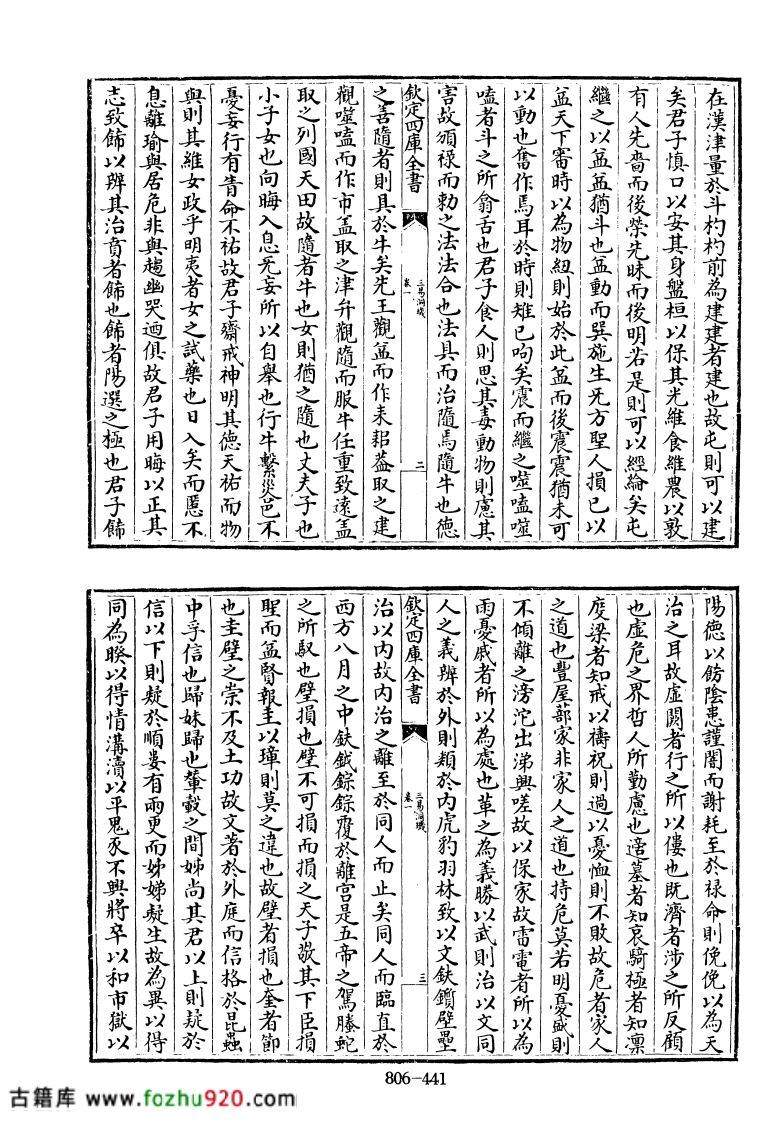 在漢津量於斗杓杓前為建建者建也故屯則可以建
矣君子慎口以安其身盤桓以保其光維食維農以敦
有人先嗇而後榮先昧而後明若是則可以經綸矣屯
繼之以益益猶斗也益動而巽施生无方聖人損已以
益天下審時以為物紐則始於此益而後震震猶未可
以動也奮作馬耳於時則雉已呴矣震而繼之噬嗑噬
嗑者斗之所翕舌也君子食人則思其毒動物則慮其
害故頒祿而勅之法法合也法具而治隨焉隨牛也德
欽定四庫全書
三易洞璣
卷一
二
之善隨者則具於牛矣先王觀益而作耒耜葢取之建
觀噬嗑而作市葢取之津弁觀隨而服牛任重致遠葢
取之列國天田故隨者牛也女則猶之隨也丈夫子也
小子女也向晦入息无妄所以自舉也行牛繫災邑不
憂妄行有眚命不祐故君子齋戒神明其德天祐而物
與則其維女政乎明夷者女之試藥也日入矣而慝不
息離瑜與居危非與趨幽哭迺俱故君子用晦以正其
志致飾以辨其治賁者飾也飾者陽選之極也君子飾
陽德以餝陰慝謹闇而謝耗至於祿命則俛俛以為天
治之耳故虛闕者行之所以僂也既濟者涉之所反顧
也虛危之界哲人所勤慮也造墓者知哀騎極者知凛
度梁者知戒以禱祝則過以憂恤則不敗故危者家人
之道也豐屋蔀家非家人之道也持危莫若明憂戚則
不傾離之滂沱出涕興嗟故以保家故雷電者所以為
雨憂戚者所以為處也革之為義勝以武則治以文同
人之義辨於外則類於内虎豹羽林致以文鈇鑕壁壘
欽定四庫全書
三易洞璣
卷一
三
治以内故内治之離至於同人而止矣同人而臨直於
西方八月之中鈇鉞錝錝覆於離宫是五帝之駕螣蛇
之所馭也壁損也壁不可損而損之天子敬其下臣損
聖而益賢報圭以璋則莫之違也故壁者損也奎者節
也圭壁之崇不及土功故文著於外庭而信格於昆蟲
中孚信也歸妹歸也輦載之間姊尚其君以上則疑於
信以下則疑於順婁有兩更而姊娣凝生故為異以得
同為睽以得情溝瀆以平鬼豕不興將卒以和市獄以
806-441
古籍库 www.fozhu920.com